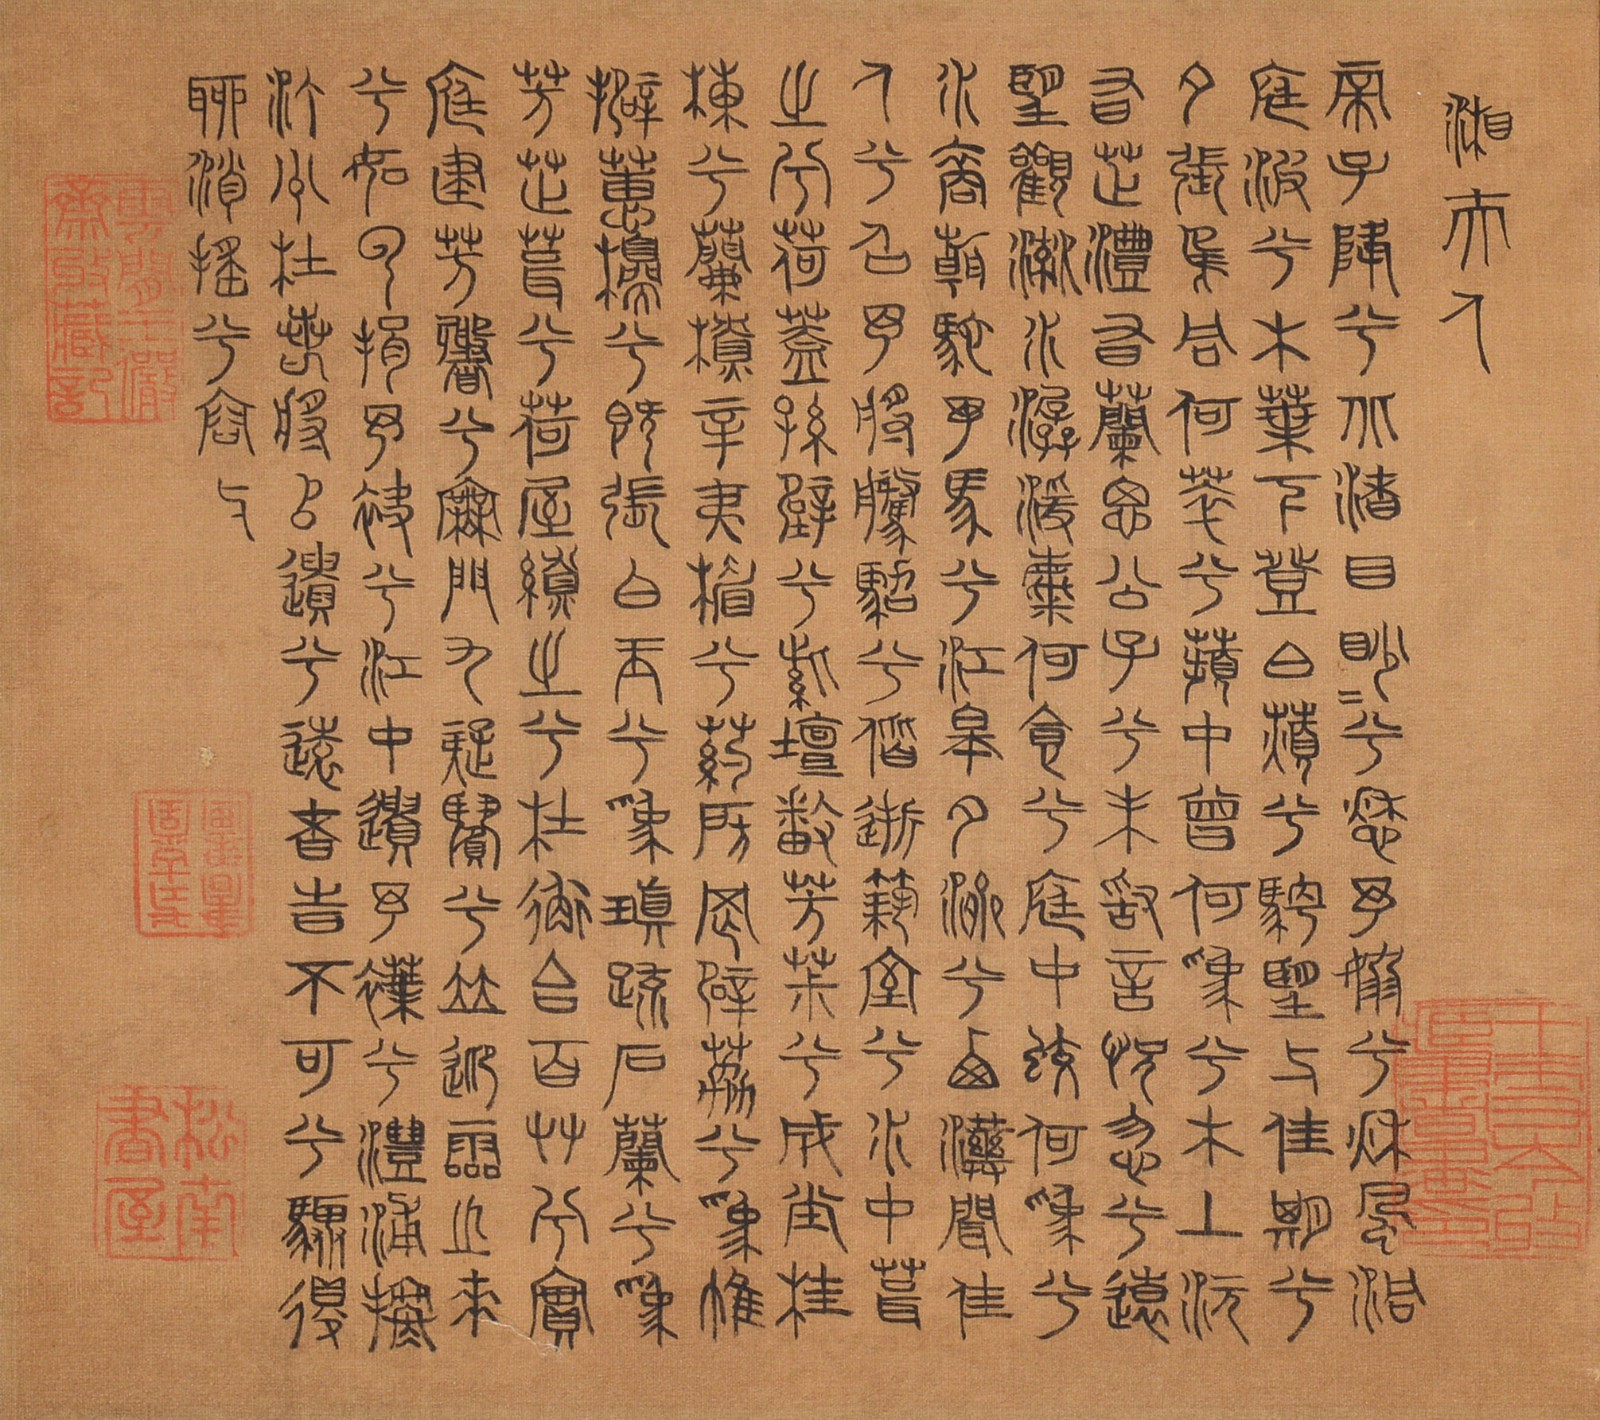 湘夫人
帝子降兮北渚目眇〻兮愁予嫋兮秋風洞
庭波兮木葉下登白薠兮騁望與佳期兮
夕張何萃兮蘋中曾何爲兮木上沅
有芷澧有蘭思公子兮未敢言怳忽兮遠
望觀流水潺湲麋何食兮庭中蛟何爲兮
水裔朝馳予馬兮江皋夕濟兮西澨聞佳
人兮召予將騰駕兮偕逝築室兮水中葺
之兮荷蓋蓀壁兮紫壇播芳椒兮成堂桂
棟兮蘭橑辛夷楣兮葯房罔薜荔兮爲帷
擗蕙櫋兮既張白玉兮爲瑱疏石蘭兮爲
芳芷葺兮荷屋繚之兮杜衡合百草兮實
庭建芳馨兮廡門九疑繽兮並迎靈之來
兮如雲捐予袂兮江中遺予褋兮澧浦搴
汀洲杜若將以遺兮遠者時不可兮驟得
聊逍搖兮容與
雲間王儼
齋收藏記
松南
書屋